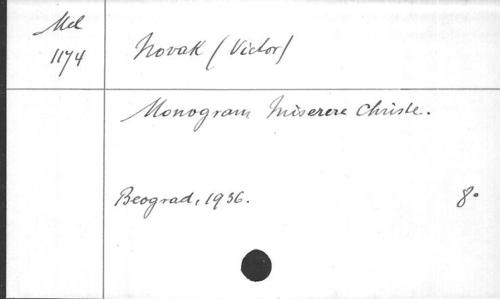 Mel
1174
Novak (Victor)
Monogram Miserere Christe.
Beograd, 1936. 8º